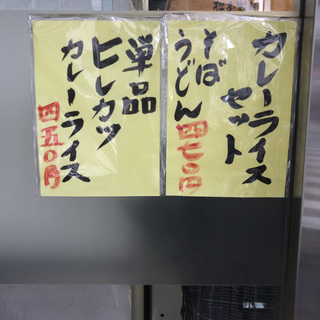 カレーライス
セット
そば
うどん
四七〇円
単品
ヒレカツ
カレーライス
四五〇円